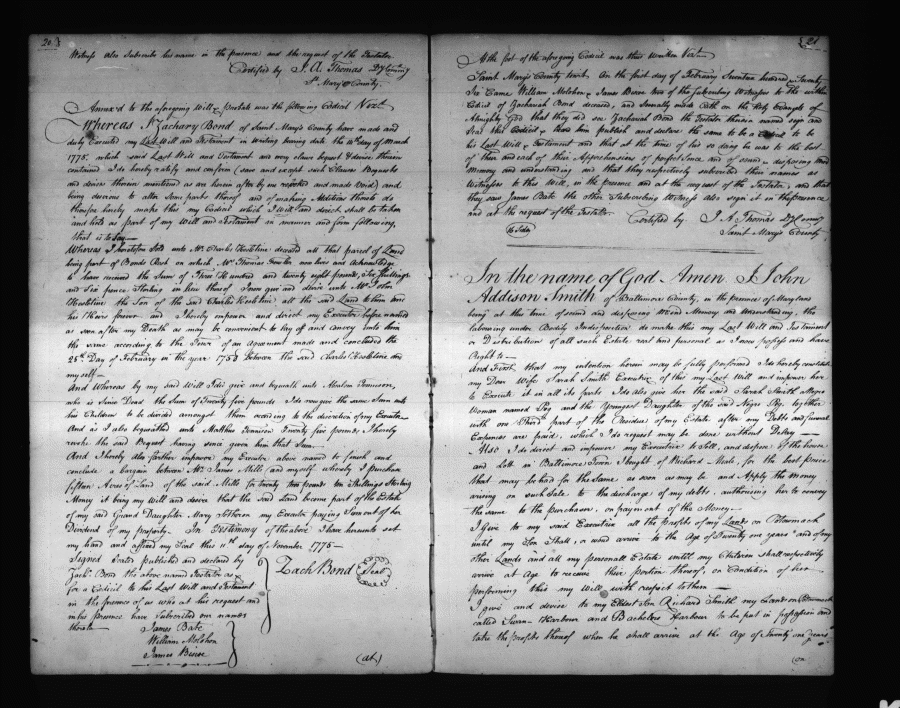 20
Witness also Subscribe his name in the presence and the request of the Testator
Certified by J. A. Thomas
St Mary's County
Annex'd to the aforegoing Will & probate was the following Codicil Vizt
Whereas I Zachary Bond of Saint Mary's County have made and
duly Executed my Last Will and Testament in writing bearing date the day of March
1775. which said Last Will and Testament and every clause bequest & devise therein
contained I do hereby ratify and confirm (save and except such Clauses Bequests
and devises therein mentioned as are herein after by me revoked and made Void) and
being desirous to alter Some parts thereof and of making Additions thereto do
therefore hereby make this my Codicil which I Will and direct shall be taken
and held as part of my Will and Testament in manner and form following,
that is to Say
Whereas I heretofore Sold unto Mr. Charles Hoskline deceased all that parcel of Land
being part of Bonds Rest on which Mr. Thomas Fowler now lives and Acknowledge
to have received the Sum of Three Hundred and twenty eight pounds, Six Shillings
and Six pence Sterling in lieu thereof I now give and devise unto Mr. John
Hoskline the Son of the said Charles Hoskline all the said Land to him and
his Heirs forever and I hereby impower and direct my Executor before named
as soon after my Death as may be convenient to lay off and convey unto him
the same according to the Tenor of an Agreement made and concluded the
28th Day of February in the year 1758 between the said Charles Hoskline and
myself
And Whereas by my said Will I did give and bequeath unto Absalom Tennison,
who is Since Dead the Sum of Twenty five pounds I do now give the same Sum unto
his Children to be divided amongst them according to the discretion of my Executor
And as I also bequeathed unto Matthew Tennison Twenty five pounds, I hereby
revoke the said Bequest having since given him that Sum.
And I hereby also further impower my Executor above named to finish and
conclude a bargain between Mr. James Mills and myself whereby I purchase
fifteen Acres of Land of the said Mills for twenty two pounds ten Shillings Sterling
Money it being my Will and desire that the said Land become part of the Estate
of my said Grand Daughter Mary Jetheron my Executor paying Same out of her
Dividend of my property. In Testimony of the above I have hereunto set
my hand and affixed my Seal this 11th day of November 1775
Signed Sealed published and declared by
Zachy Bond the above named Testator as
for a Codicil to this Last Will and Testament
in the presence of us who at his request and
in his presence have Subscribed our names
thereto
Zach Bond
Seal
James Bate
William Molohon
James Biscoe
(At.)
21
At the foot of the aforegoing Codicil was thus Written Vizt
Saint Mary's County Court. On the first day of February Seventeen hundred & Seventy
Six Came William Molohon & James Biscoe two of the Subscribing Witnesses to the within
Codicil of Zachariah Bond deceased, and severally made Oath on the Holy Evangels of
Almighty God that they did see Zachariah Bond the Testator therein named sign and
Seal this Codicil & heard him publish and declare the same to be a Codicil to be
his Last Will & Testament and that at the time of his so doing he was to the best
of their and each of their Apprehensions of perfect Sence and of sound & disposing Mind
Memory and understanding and that they respectively subscribed their names as
Witnesses to this Will, in the presence and at the request of the Testator, and that
they saw James Bate the other Subscribing Witness also sign it in the presence
and at the request of the Testator.
Certified by. J. A. Thomas
Saint Mary's County
In the name of God Amen I John
Addison Smith of Baltimore County, in the province of Maryland
being at this time of sound and disposing Mind Memory and Understanding, tho
labouring under Bodily Indisposition do make this my Last Will and Testament
or Distribution of all such Estate, real and personal as I now possess and have
Right to
And First, that my intention herein may be fully performed I do hereby constitute
my Dear Wife Sarah Smith Executrix of this my Last Will and impower her
to Execute it in all its parts I do also give her the said Sarah Smith Negro
Woman named Peg and the Youngest Daughter of the said Negro Peg together
with one Third part of the Residue of my Estate after my Debts and funeral
Expenses are paid, which I do request may be done without Delay
Also I do direct and impower my Executrix to Sell, and dispose of the house
and Lott in Baltimore Town I bought of Richard Moale, for the best price
that may be had for the Same as soon as may be and Apply the Money
arising on such Sale to the discharge of my debts, authorising her to convey
the same to the purchaser, on payment of the Money
I give to my said Executrix all the profits of my Lands on Potowmack
until my Son Shall, or wou'd arrive to the Age of Twenty one years and of my
Other Lands and all my personall Estate until my Children shall respectively
arrive at Age to receive their portion thereof, on Condition of her
performing this my Will with respect to them
I give and devise to my Eldest Son Richard Smith my Lands on Potowmack
called Swan Harbour and Bachelors Harbour to be put in possession and
take the profits thereof when he shall arrive at the Age of Twenty one years
(on